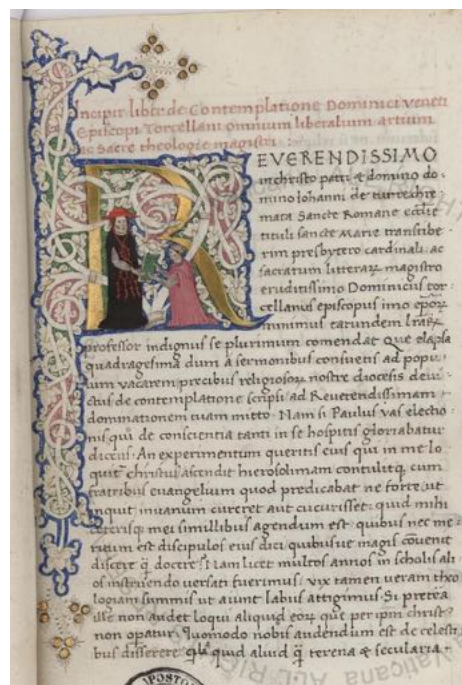 Incipit liber de Contemplatione Dominici veneti
episcopi Torcellani omnium liberalium artium
ac Sacre theologie magistri :
REVERENDISSIMO
in christo patri & domino do-
mino Iohanni de turrecre
mata Sancte Romane ecclie
tituli sancte Marie transtibe
rim presbytero cardinali. ac
sacrarum litterarꝝ magistro
eruditissimo Dominicus tor
cellanus episcopus imo epoꝝ
minimus earundem lrarꝝ
professor indignus se plurimum comendat Que elapsa
quadragesima dum a sermonibus consuetis ad popu
lum vacarem, precibus religiosoꝝ nostre diocesis devi
ctus de contemplatione scripsi ad Reverendissimam
dominationem tuam mitto. Nam si Paulus vas electio
nis, qui de conscientia tanti in se hospitis gloriabatur
dicens: An experimentum queritis eius qui in me lo
quit christus, ascendit hierosolimam contulitq, cum
fratribus evangelium quod predicabat ne forte, ut
inquit invanum cureret aut cucurisset: quid mihi
ceterisq mei simillibus agendum est. quibus nec me
ritum est discipulos eius dici quibusve magis convenit
discere q docere? Nam licet multos annos in scholis ali
os instruendo versati fuerimus: vix tamen veram theo
logiam summis ut aiunt labiis attigimus. Si preterea
ille non audet loqui aliquid eoꝝ que per ipm christ
non opatur. Quomodo nobis audendum est de celesti
bus disserere qbs quid aliud q terena & secularia